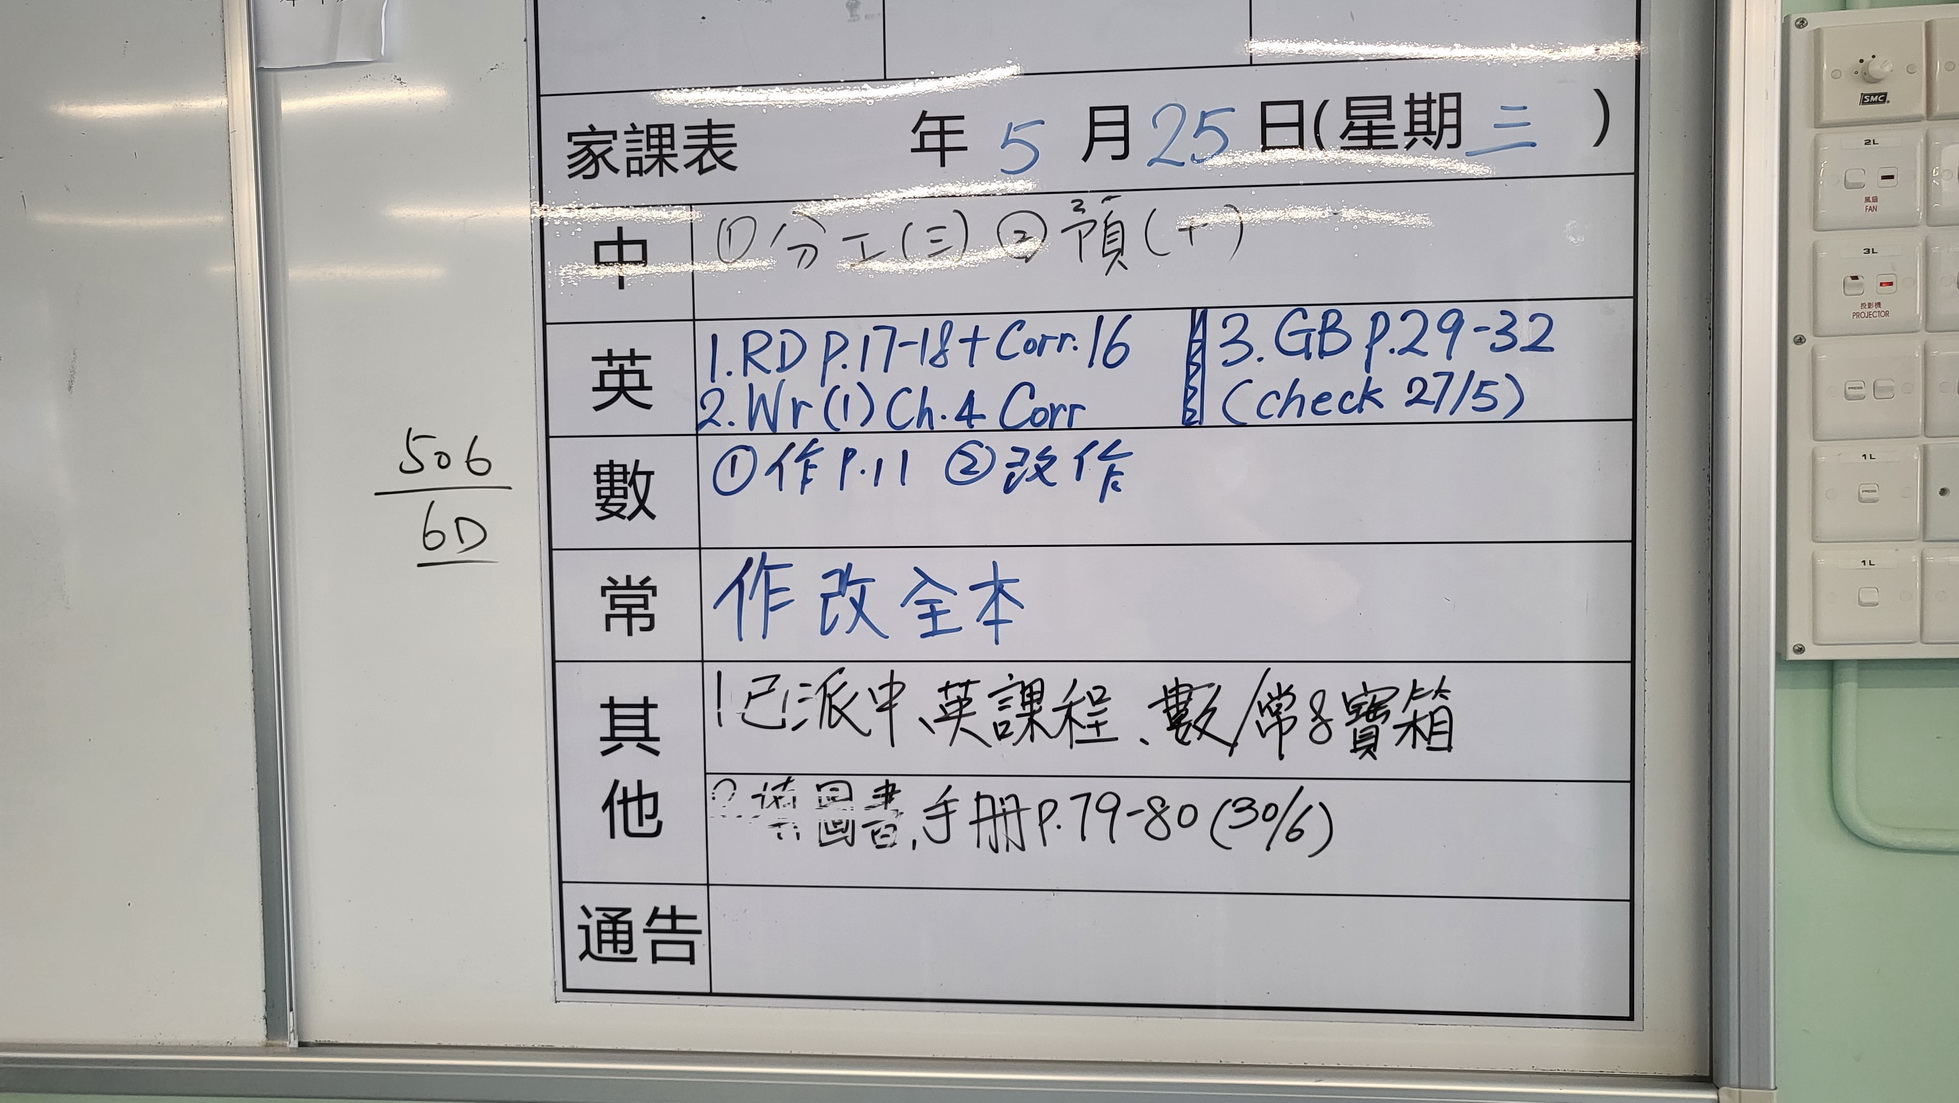 家課表 年 5 月 25 日(星期 三 )
中 ①分工(三) ②預(十)
英 1.RD p.17-18+Corr.16
2.Wr(1) Ch.4 Corr
3.GB p.29-32
(check 27/5)
數 ①作P.11 ②改作
常 作改全本
其他 1.已派中、英課程、數/常8寶箱
2.填圖書,手册p.79-80(30/6)
通告
506
6D
SMC
2L
風扇
FAN
3L
投影機
PROJECTOR
PRESS
1L
PRESS
1L